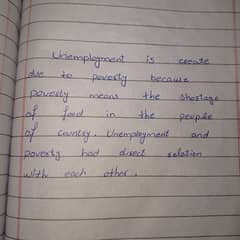 Unemployment is create
due to poverty because
poverty means the shortage
of food in the people
of country. Unemployment and
poverty had direct relation
with each other.